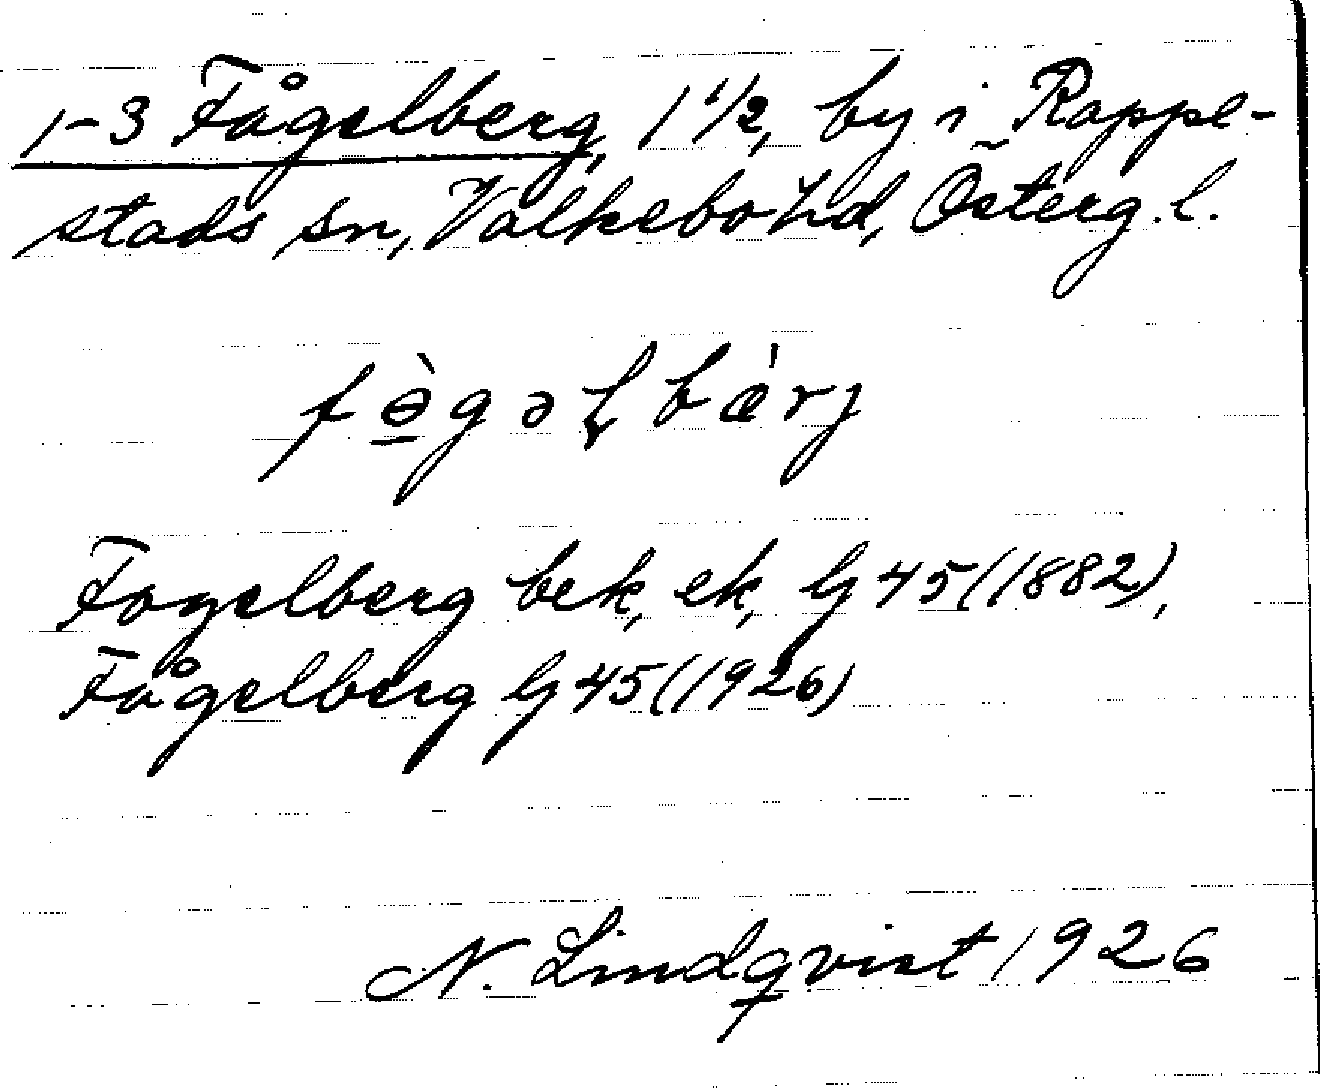 1-3 Fågelberg, 1 1/2, by i Rappe-
stads sn, Valkebo hd, Österg. l.
fə̀gəɭbæ'rj
Fogelberg bek, ek, lj 45 (1882),
Fågelberg lj 45 (1926)
N. Lindqvist 1926